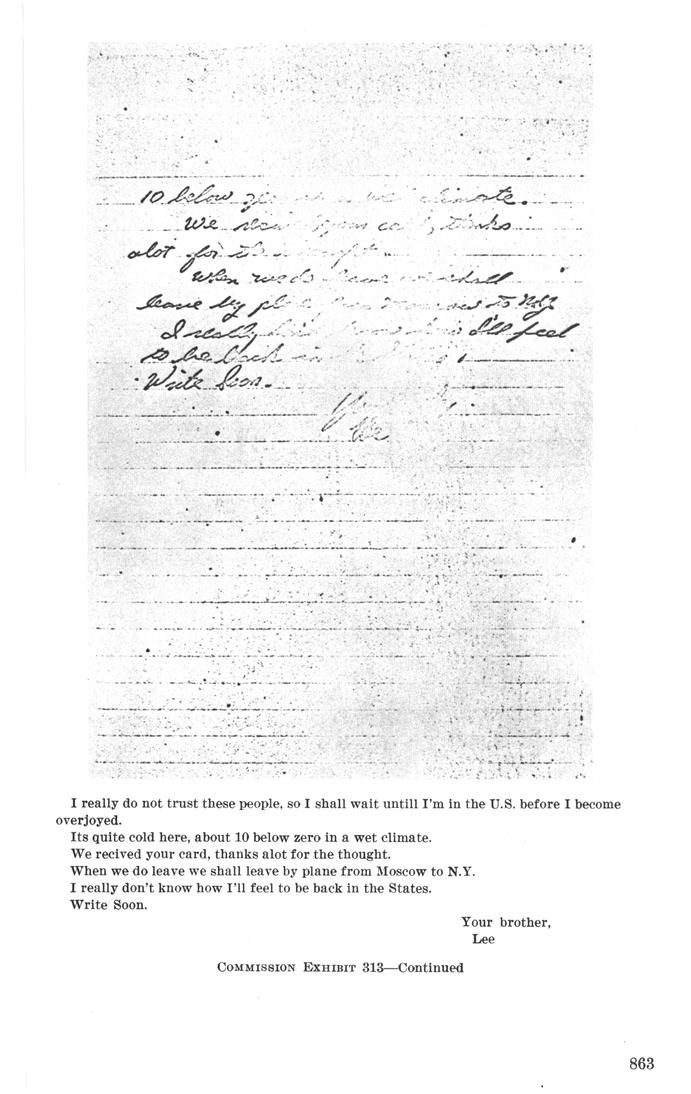 10 below
We
alot for
When we do shall
leave by to N.Y.
I really I'll feel
to be back in
Write Soon.
I really do not trust these people, so I shall wait untill I'm in the U.S. before I become
overjoyed.
Its quite cold here, about 10 below zero in a wet climate.
We recived your card, thanks alot for the thought.
When we do leave we shall leave by plane from Moscow to N.Y.
I really don't know how I'll feel to be back in the States.
Write Soon.
Your brother,
Lee
COMMISSION EXHIBIT 313—Continued
863